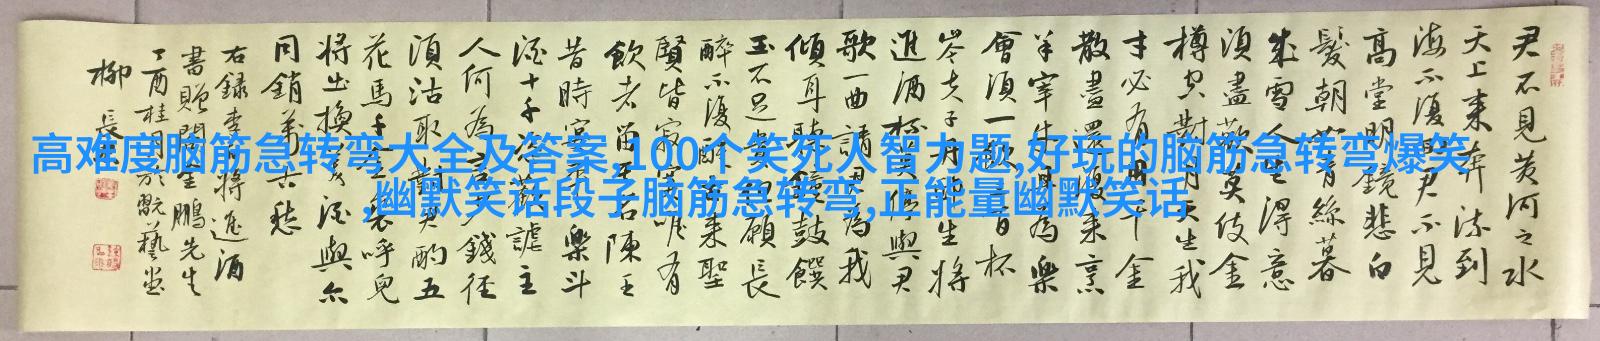 君不見黃河之水
天上来奔流到
海不復回君不見
高堂明鏡悲白
髮朝如青絲暮
成雪人生得意
須盡歡莫使金
樽空對月天生我
才必有用千金
散盡還復来烹
羊宰牛且為樂
會須一飲三百杯
岑夫子丹丘生將
進酒杯莫停與君
歌一曲請君為我
傾耳聽鐘鼓饌
玉不足貴但願長
醉不復醒古来聖
賢皆寂寞唯有
飲者留其名陳王
昔時宴平樂斗
酒十千恣歡謔主
人何為言少錢徑
須沽取對君酌五
花馬千金裘呼兒
將出換美酒與尔
同銷萬古愁
右録李白將進酒
書贈生鵬先生
丁酉桂月於翫藝堂
柳長
高难度脑筋急转弯大全及答案,100个笑死人智力题,好玩的脑筋急转弯爆笑
,幽默笑话段子脑筋急转弯,正能量幽默笑话